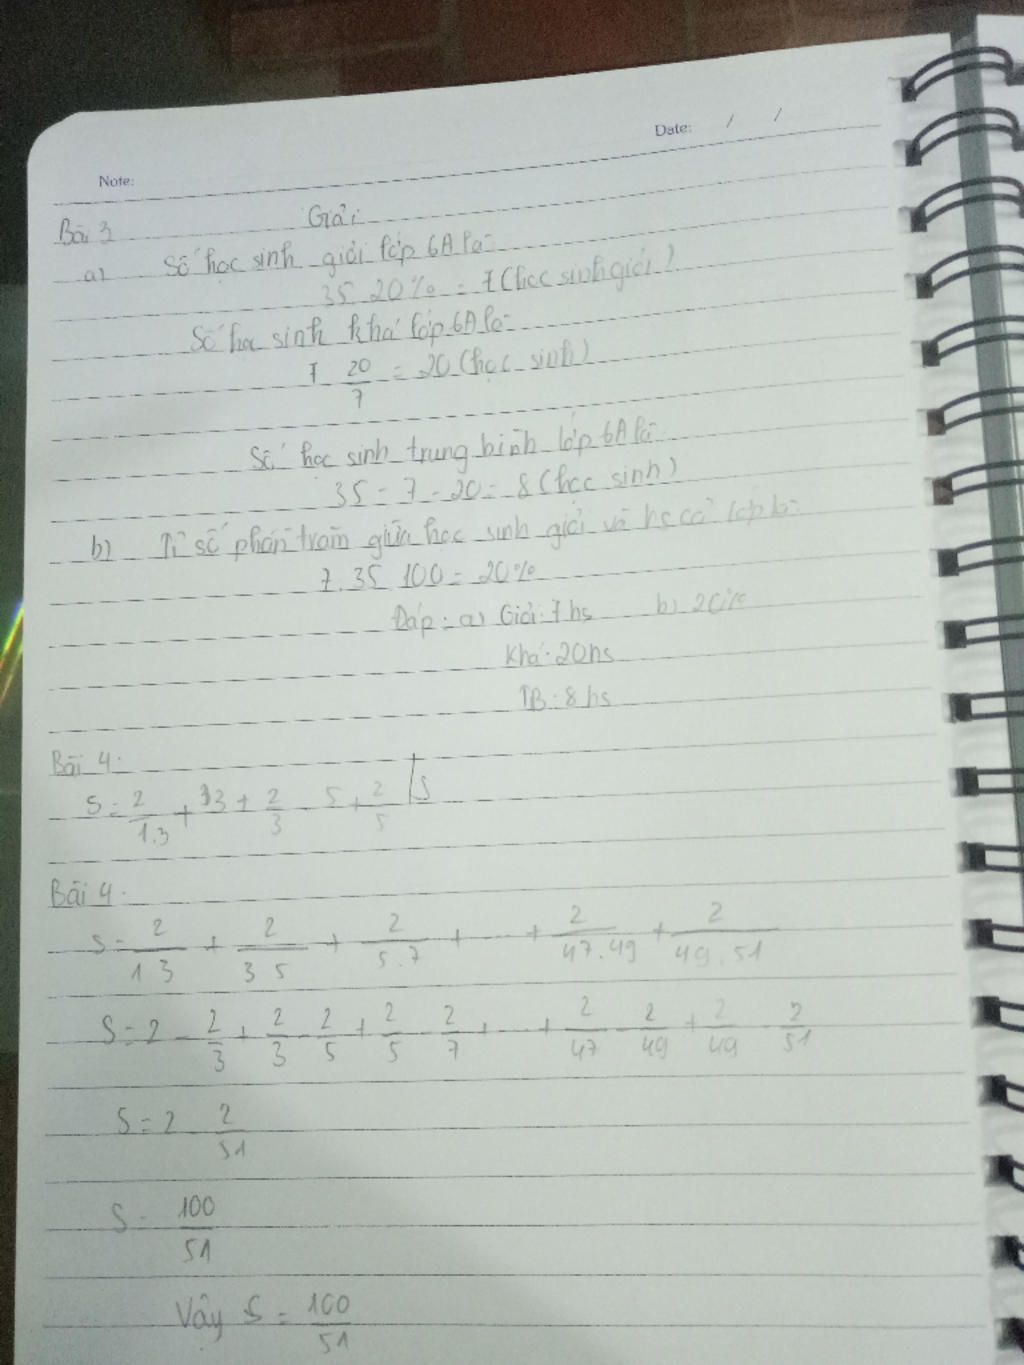 Note:
Date: / /
Bài 3 Giải
a) Số học sinh giỏi lớp 6A là:
35 . 20% = 7 (học sinh giỏi)
Số họ sinh khá lớp 6A là:
7 . 20/7 = 20 (học sinh)
Số học sinh trung bình lớp 6A là:
35 - 7 - 20 = 8 (học sinh)
b) Tỉ số phần trăm giữa học sinh giỏi và hs cả lớp là:
7 : 35 . 100 = 20%
Đáp: a) Giỏi: 7 hs b) 20%
Khá: 20 hs
TB: 8 hs
Bài 4:
S = 2/1.3 + 13 + 2/3 - 5 + 2/5
Bài 4:
S = 2/1.3 + 2/3.5 + 2/5.7 + ... + 2/47.49 + 2/49.51
S = 2 - 2/3 + 2/3 - 2/5 + 2/5 - 2/7 + ... + 2/47 - 2/49 + 2/49 - 2/51
S = 2 - 2/51
S = 100/51
Vậy S = 100/51